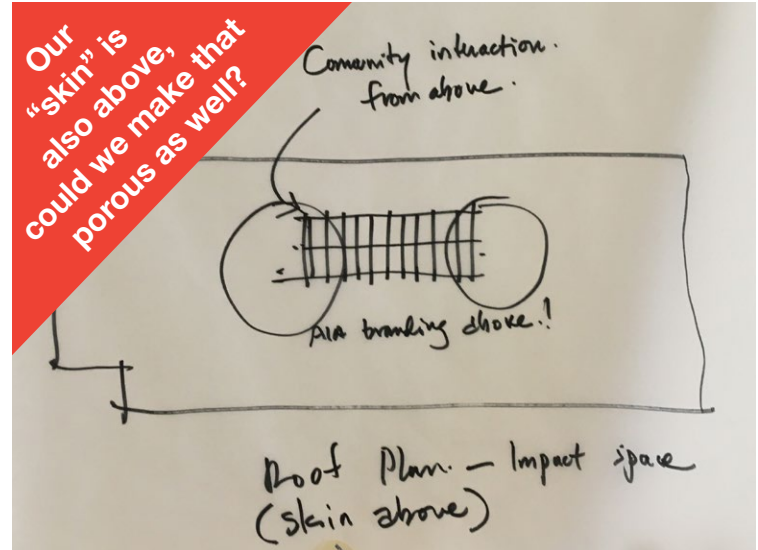 Our
“skin” is
also above,
could we make that
porous as well?
Comunity interaction.
from above.
AIA branding above.!
Roof Plan. – Impact space
(skin above)